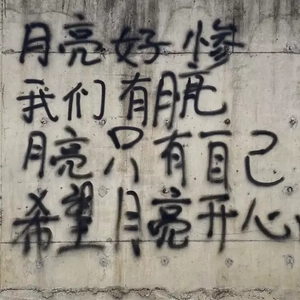 月亮好惨
我们有
月亮只有自己
希望月亮开心